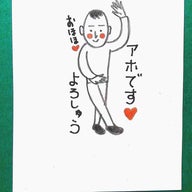 アホです♥
よろしゅう
おほほ♥